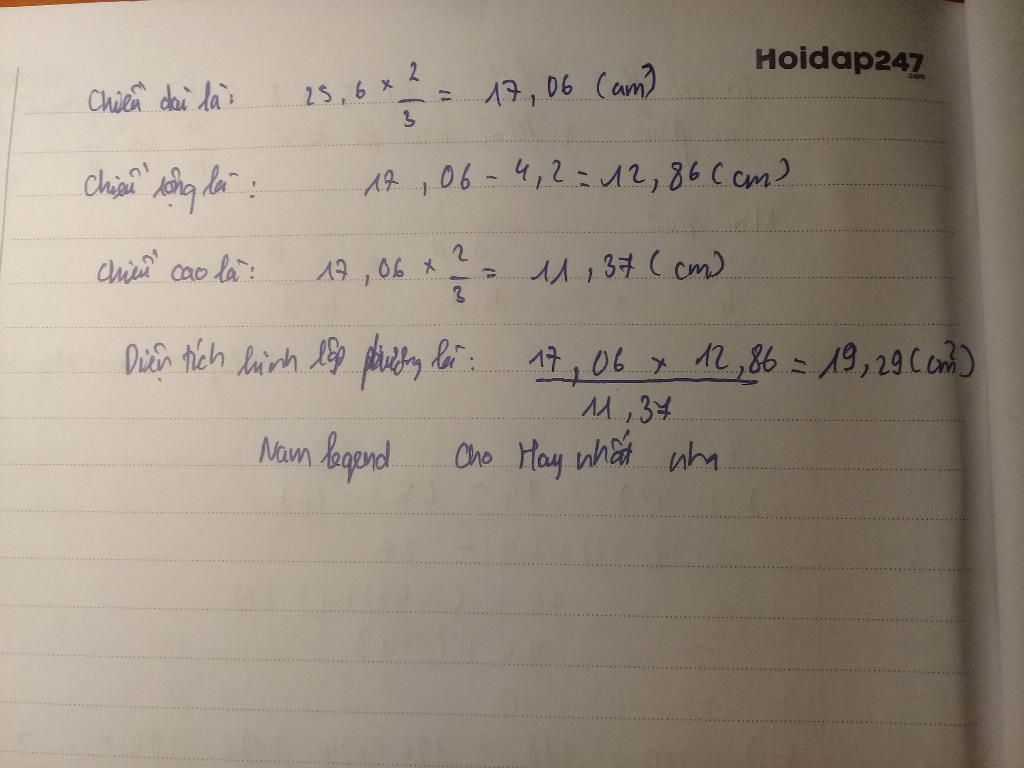 Hoidap247
.com
Chiều dài là: 25,6 × 2/3 = 17,06 (cm)
Chiều rộng là: 17,06 - 4,2 = 12,86 (cm)
Chiều cao là: 17,06 × 2/3 = 11,37 (cm)
Diện tích hình lập phương là: 17,06 × 12,86 / 11,37 = 19,29 (cm²)
Nam legend cho Hay nhất nha